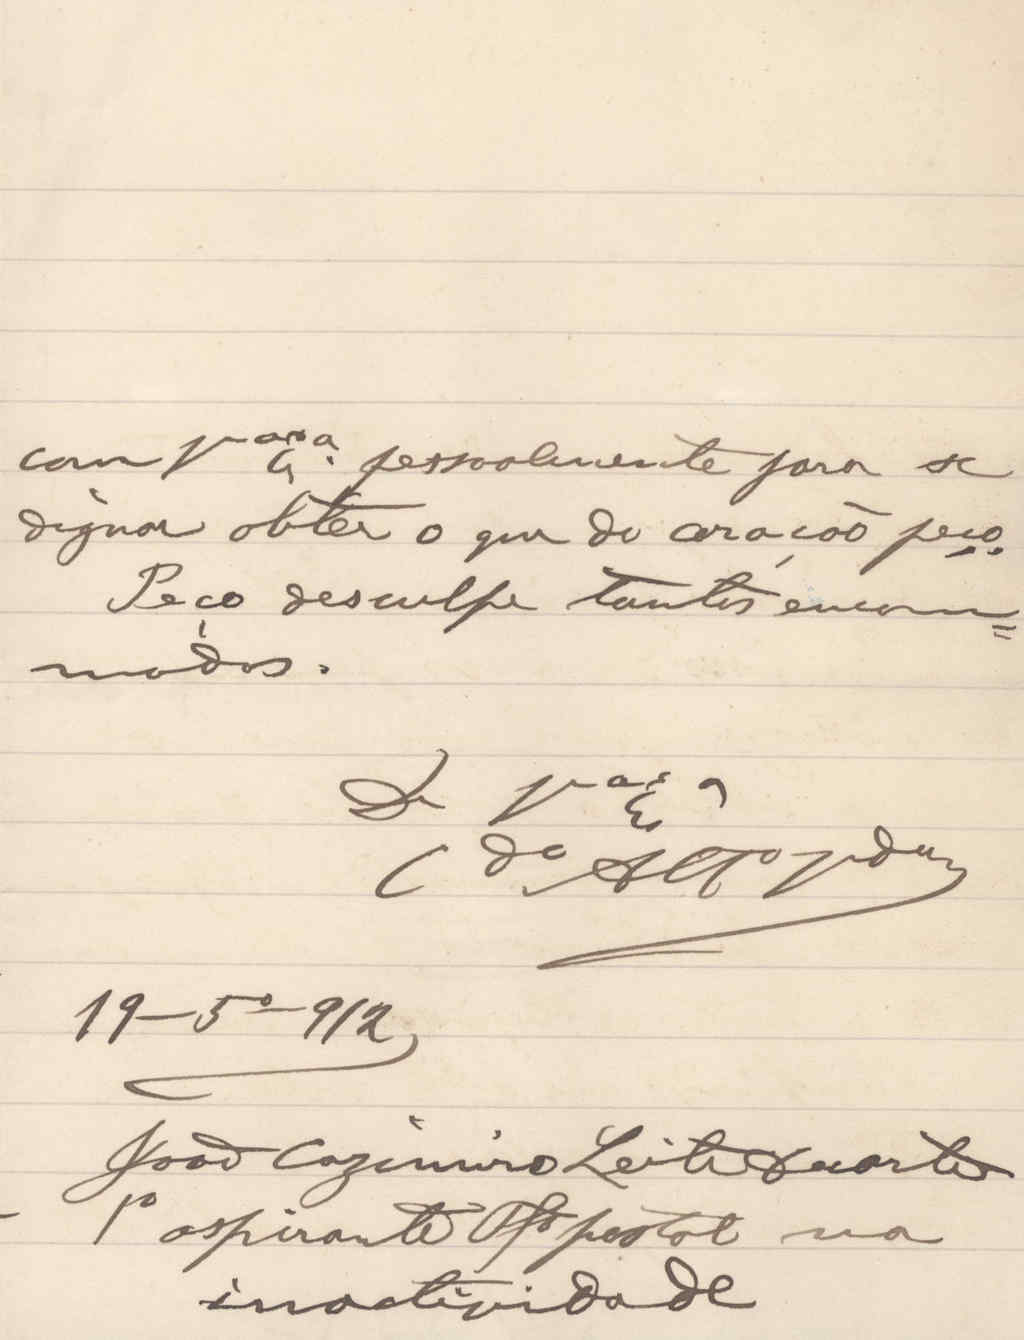 com V. Ex.ª pessoalmente para se
dignar obter o que de coração peço.
Peço desculpe tantos encom=
modos.
De V. Ex.ª
C.do Att.o V.dor
19-5º-912
João Cazimiro Leite Duarte
1º aspirante postal na
inactividade